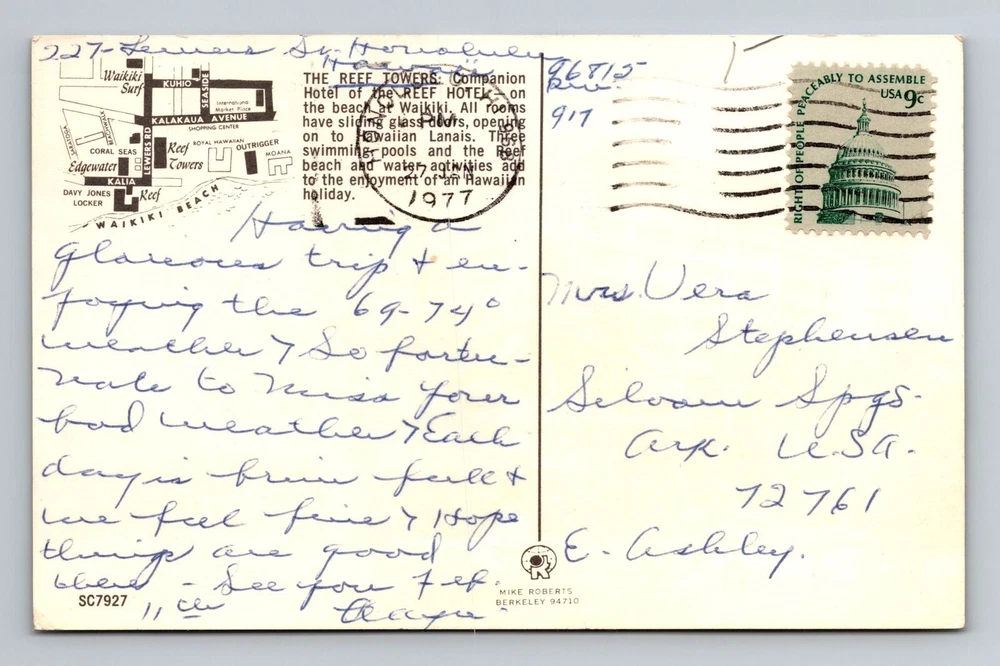 227- Lewers St. Honolulu
Hawaii
96815
Rm.
917
Waikiki
Surf
KUHIO
SEASIDE
International
Market Place
KALAKAUA AVENUE
SHOPPING CENTER
LEWERS RD
CORAL SEAS
Reef
Towers
ROYAL HAWAIIAN
OUTRIGGER
MOANA
Edgewater
KALIA
DAVY JONES
LOCKER
Reef
WAIKIKI BEACH
THE REEF TOWERS: Companion
Hotel of the REEF HOTEL, on
the beach at Waikiki. All rooms
have sliding glass doors, opening
on to Hawaiian Lanais. Three
swimming pools and the Reef
beach and water activities add
to the enjoyment of an Hawaiian
holiday.
PM
27 JAN
1977
RIGHT OF PEOPLE PEACEABLY TO ASSEMBLE
USA 9c
Having a
glorious trip & en-
joying the 69-74°
weather, So fortu-
nate to miss your
bad weather, Each
day is brim full &
we feel fine, Hope
things are good
there - See you Feb.
11th
Mrs. Vera
Stephensen
Siloam Spgs.
Ark. U.S.A.
72761
E. Ashley.
SC7927
MIKE ROBERTS
BERKELEY 94710